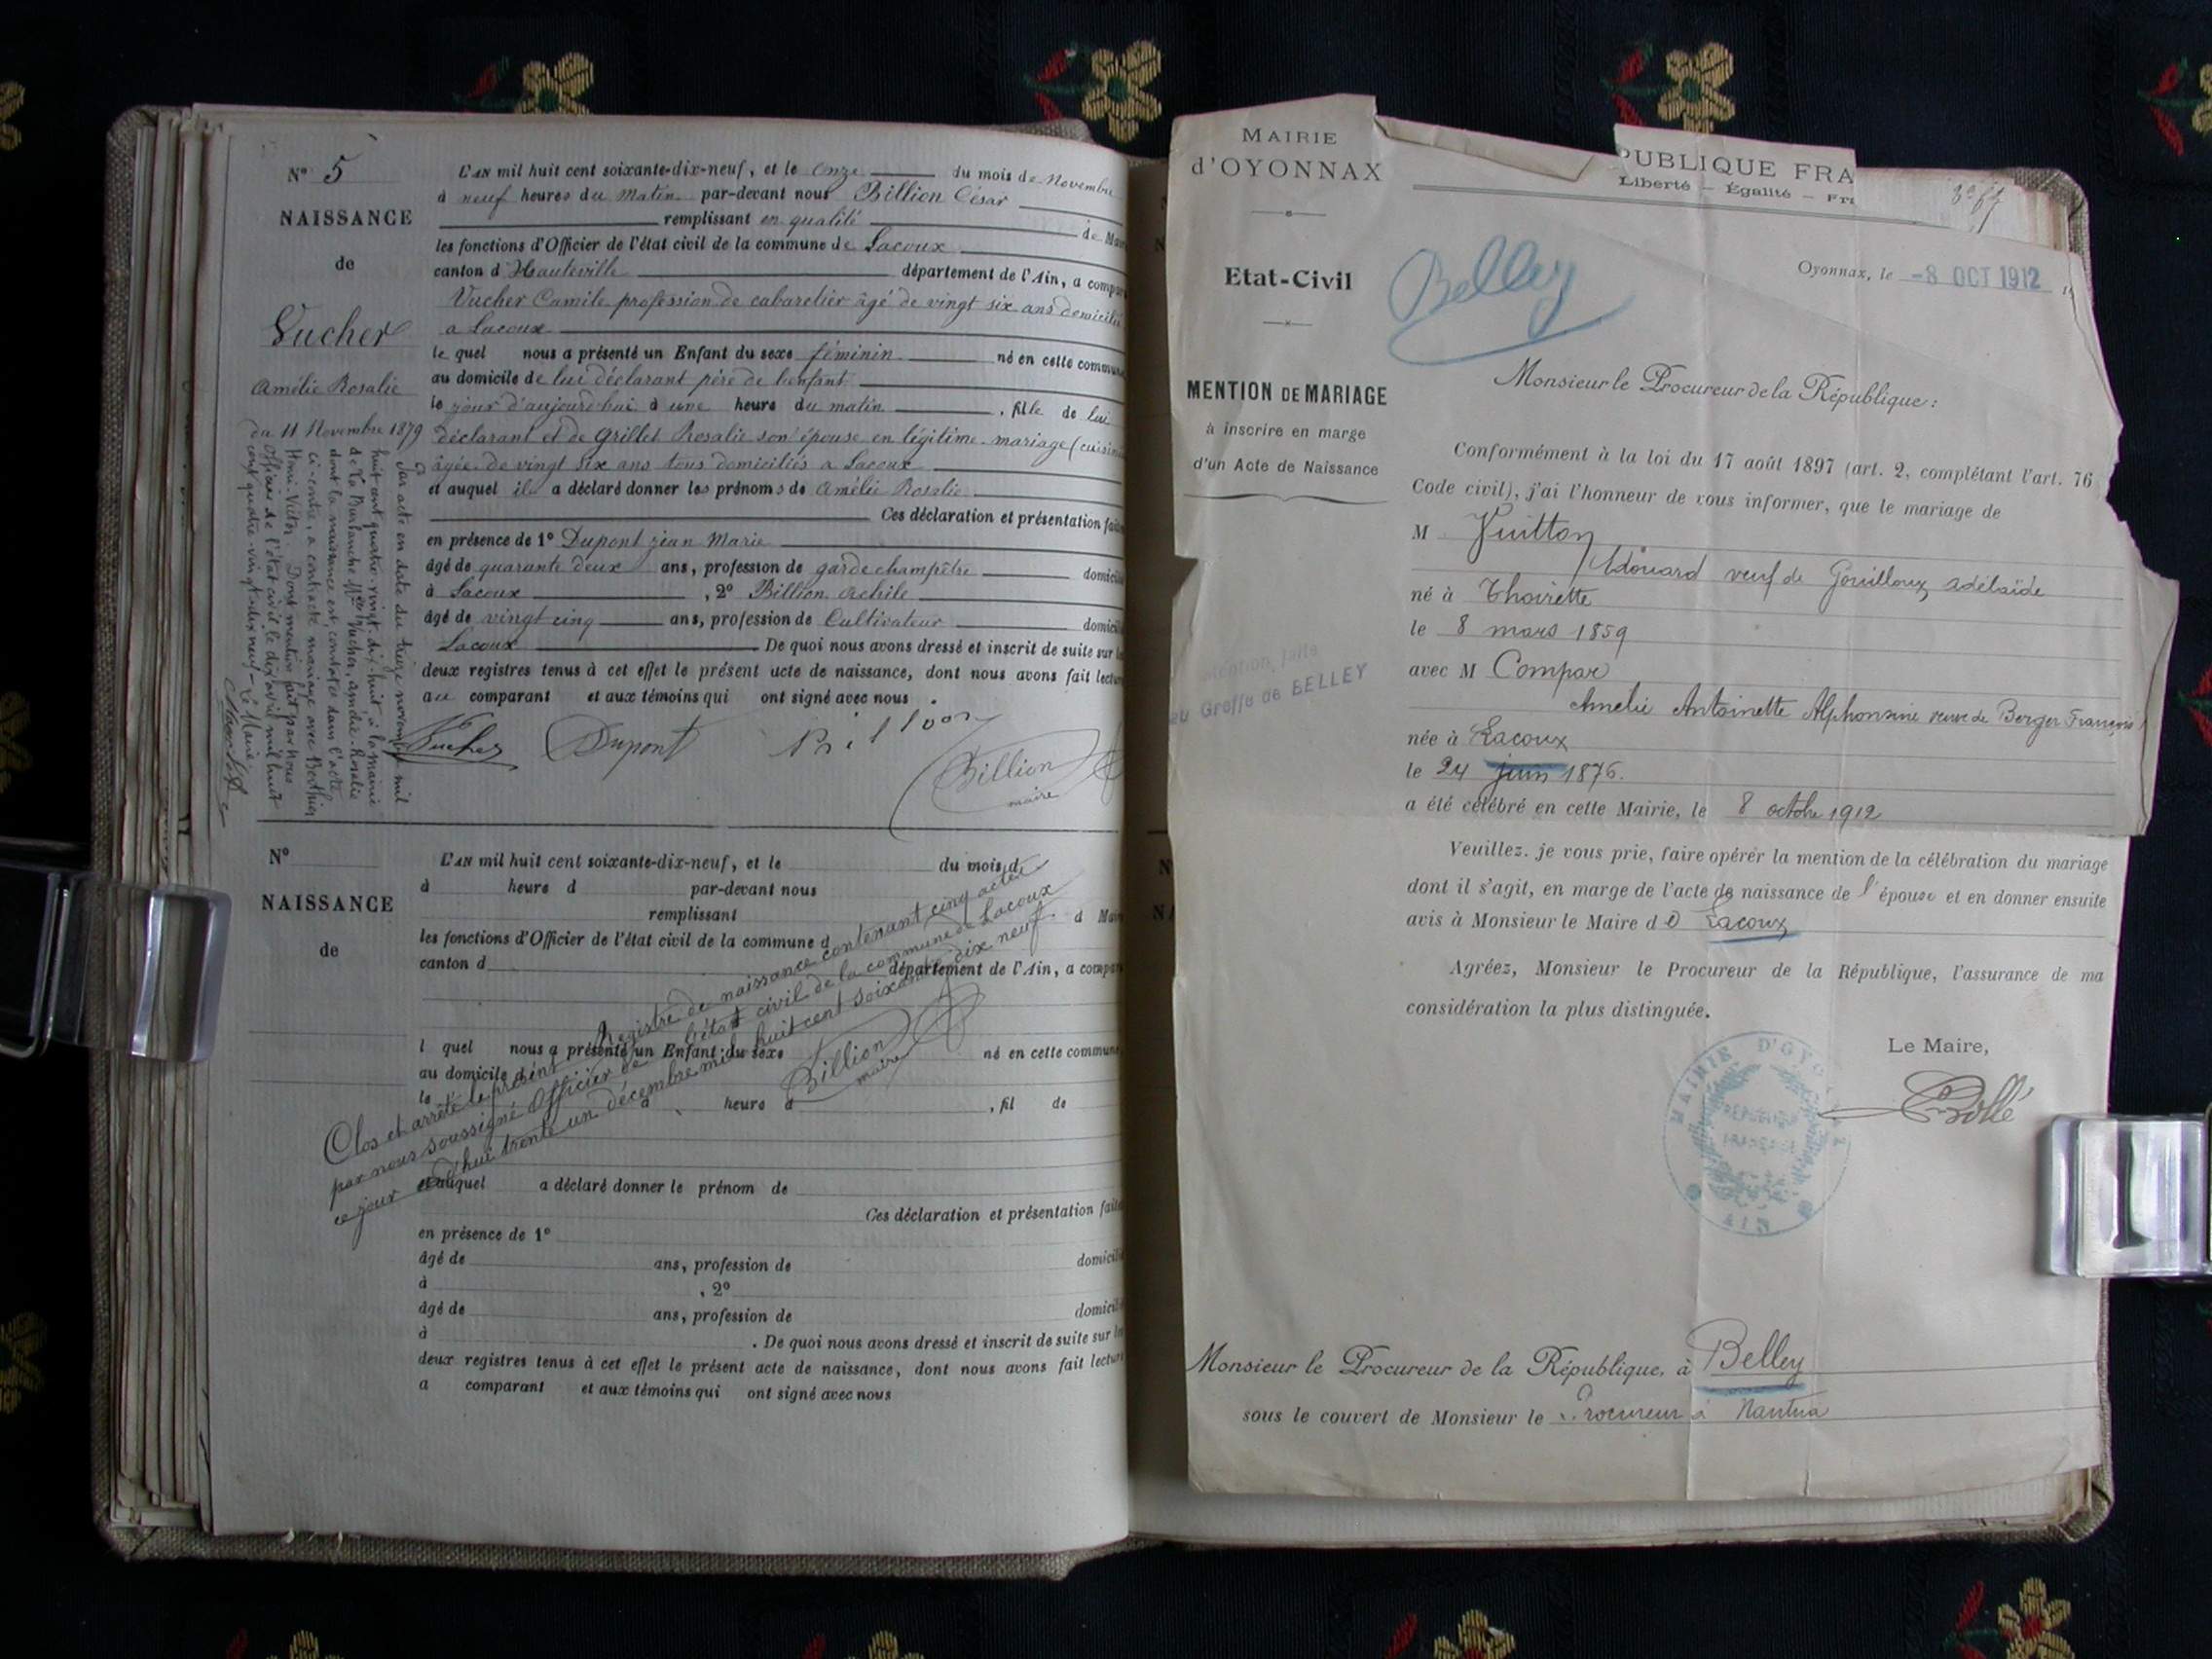 Nº 5
NAISSANCE
de
Vucher
Amélie Rosalie
du 11 Novembre 1879
L'AN mil huit cent soixante-dix-neuf, et le onze du mois de Novembre
à neuf heures du matin par-devant nous Billion César
remplissant en qualité de Mai
les fonctions d'Officier de l'état civil de la commune de Lacoux
canton d'Hauteville département de l'Ain, a compar
Vucher Camile profession de cabaretier âgé de vingt six ans domicilié
a Lacoux
le quel nous a présenté un Enfant du sexe féminin né en cette commune
au domicile de lui déclarant père de l'enfant
le jour d'aujourd'hui à une heure du matin, fille de lui
déclarant et de Grillet Rosalie son épouse en légitime mariage (cuisin
âgée de vingt six ans tous domiciliés a Lacoux
et auquel il a déclaré donner les prénoms de Amélie Rosalie
Ces déclaration et présentation faites
en présence de 1º Dupont jean Marie
âgé de quarante deux ans, profession de garde champêtre domicilié
à Lacoux, 2º Billion Achile
âgé de vingt cinq ans, profession de Cultivateur domicil
Lacoux De quoi nous avons dressé et inscrit de suite sur les
deux registres tenus à cet effet le présent acte de naissance, dont nous avons fait lecture
au comparant et aux témoins qui ont signé avec nous.
Vucher Dupont Billion
Billion
maire
Par acte en date du treize novembre mil
huit cent quatre-vingt-dix-huit à la mairie
de La Burbanche Melle Vucher, amélie-Rosalie
dont la naissance est constatée dans l'acte
ci-contre, a contracté mariage avec Berthier
Henri-Victor. Dont mention fait par nous
officier de l'état civil le dix avril mil huit
cent quatre-vingt-dix neuf - Le Maire
Nº
NAISSANCE
de
L'AN mil huit cent soixante-dix-neuf, et le du mois d
à heure d par-devant nous
remplissant d Mai
les fonctions d'Officier de l'état civil de la commune d
canton d département de l'Ain, a compar
l quel nous a présenté un Enfant du sexe né en cette commune
au domicile d
le à heure d, fil de
et auquel a déclaré donner le prénom de
Ces déclaration et présentation faites
en présence de 1º
âgé de ans, profession de domicilié
à, 2º
âgé de ans, profession de domicilié
à. De quoi nous avons dressé et inscrit de suite sur les
deux registres tenus à cet effet le présent acte de naissance, dont nous avons fait lecture
a comparant et aux témoins qui ont signé avec nous
Clos et arrêté le présent registre de naissance contenant cinq actes
par nous soussigné Officier de l'état civil de la commune de Lacoux
ce jour d'hui trente un décembre mil huit cent soixante dix neuf.
Billion
maire
MAIRIE
d'OYONNAX
Etat-Civil
MENTION DE MARIAGE
à inscrire en marge
d'un Acte de Naissance
mention faite
au Greffe de BELLEY
PUBLIQUE FRA
Liberté — Égalité — Fra
Belley
Oyonnax, le -8 OCT 1912
Monsieur le Procureur de la République:
Conformément à la loi du 17 août 1897 (art. 2, complétant l'art. 76
Code civil), j'ai l'honneur de vous informer, que le mariage de
M Vuitton
Edouard veuf de Gouilloux adélaïde
né à Thoirette
le 8 mars 1859
avec M Compar
Amélie Antoinette Alphonsine veuve de Berger François
née à Lacoux
le 24 juin 1876.
a été célébré en cette Mairie, le 8 octobre 1912
Veuillez, je vous prie, faire opérer la mention de la célébration du mariage
dont il s'agit, en marge de l'acte de naissance de l'épouse et en donner ensuite
avis à Monsieur le Maire de Lacoux
Agréez, Monsieur le Procureur de la République, l'assurance de ma
considération la plus distinguée.
Le Maire,
Bollé
MAIRIE D'OYONNAX
AIN
Monsieur le Procureur de la République, à Belley
sous le couvert de Monsieur le Procureur à Nantua